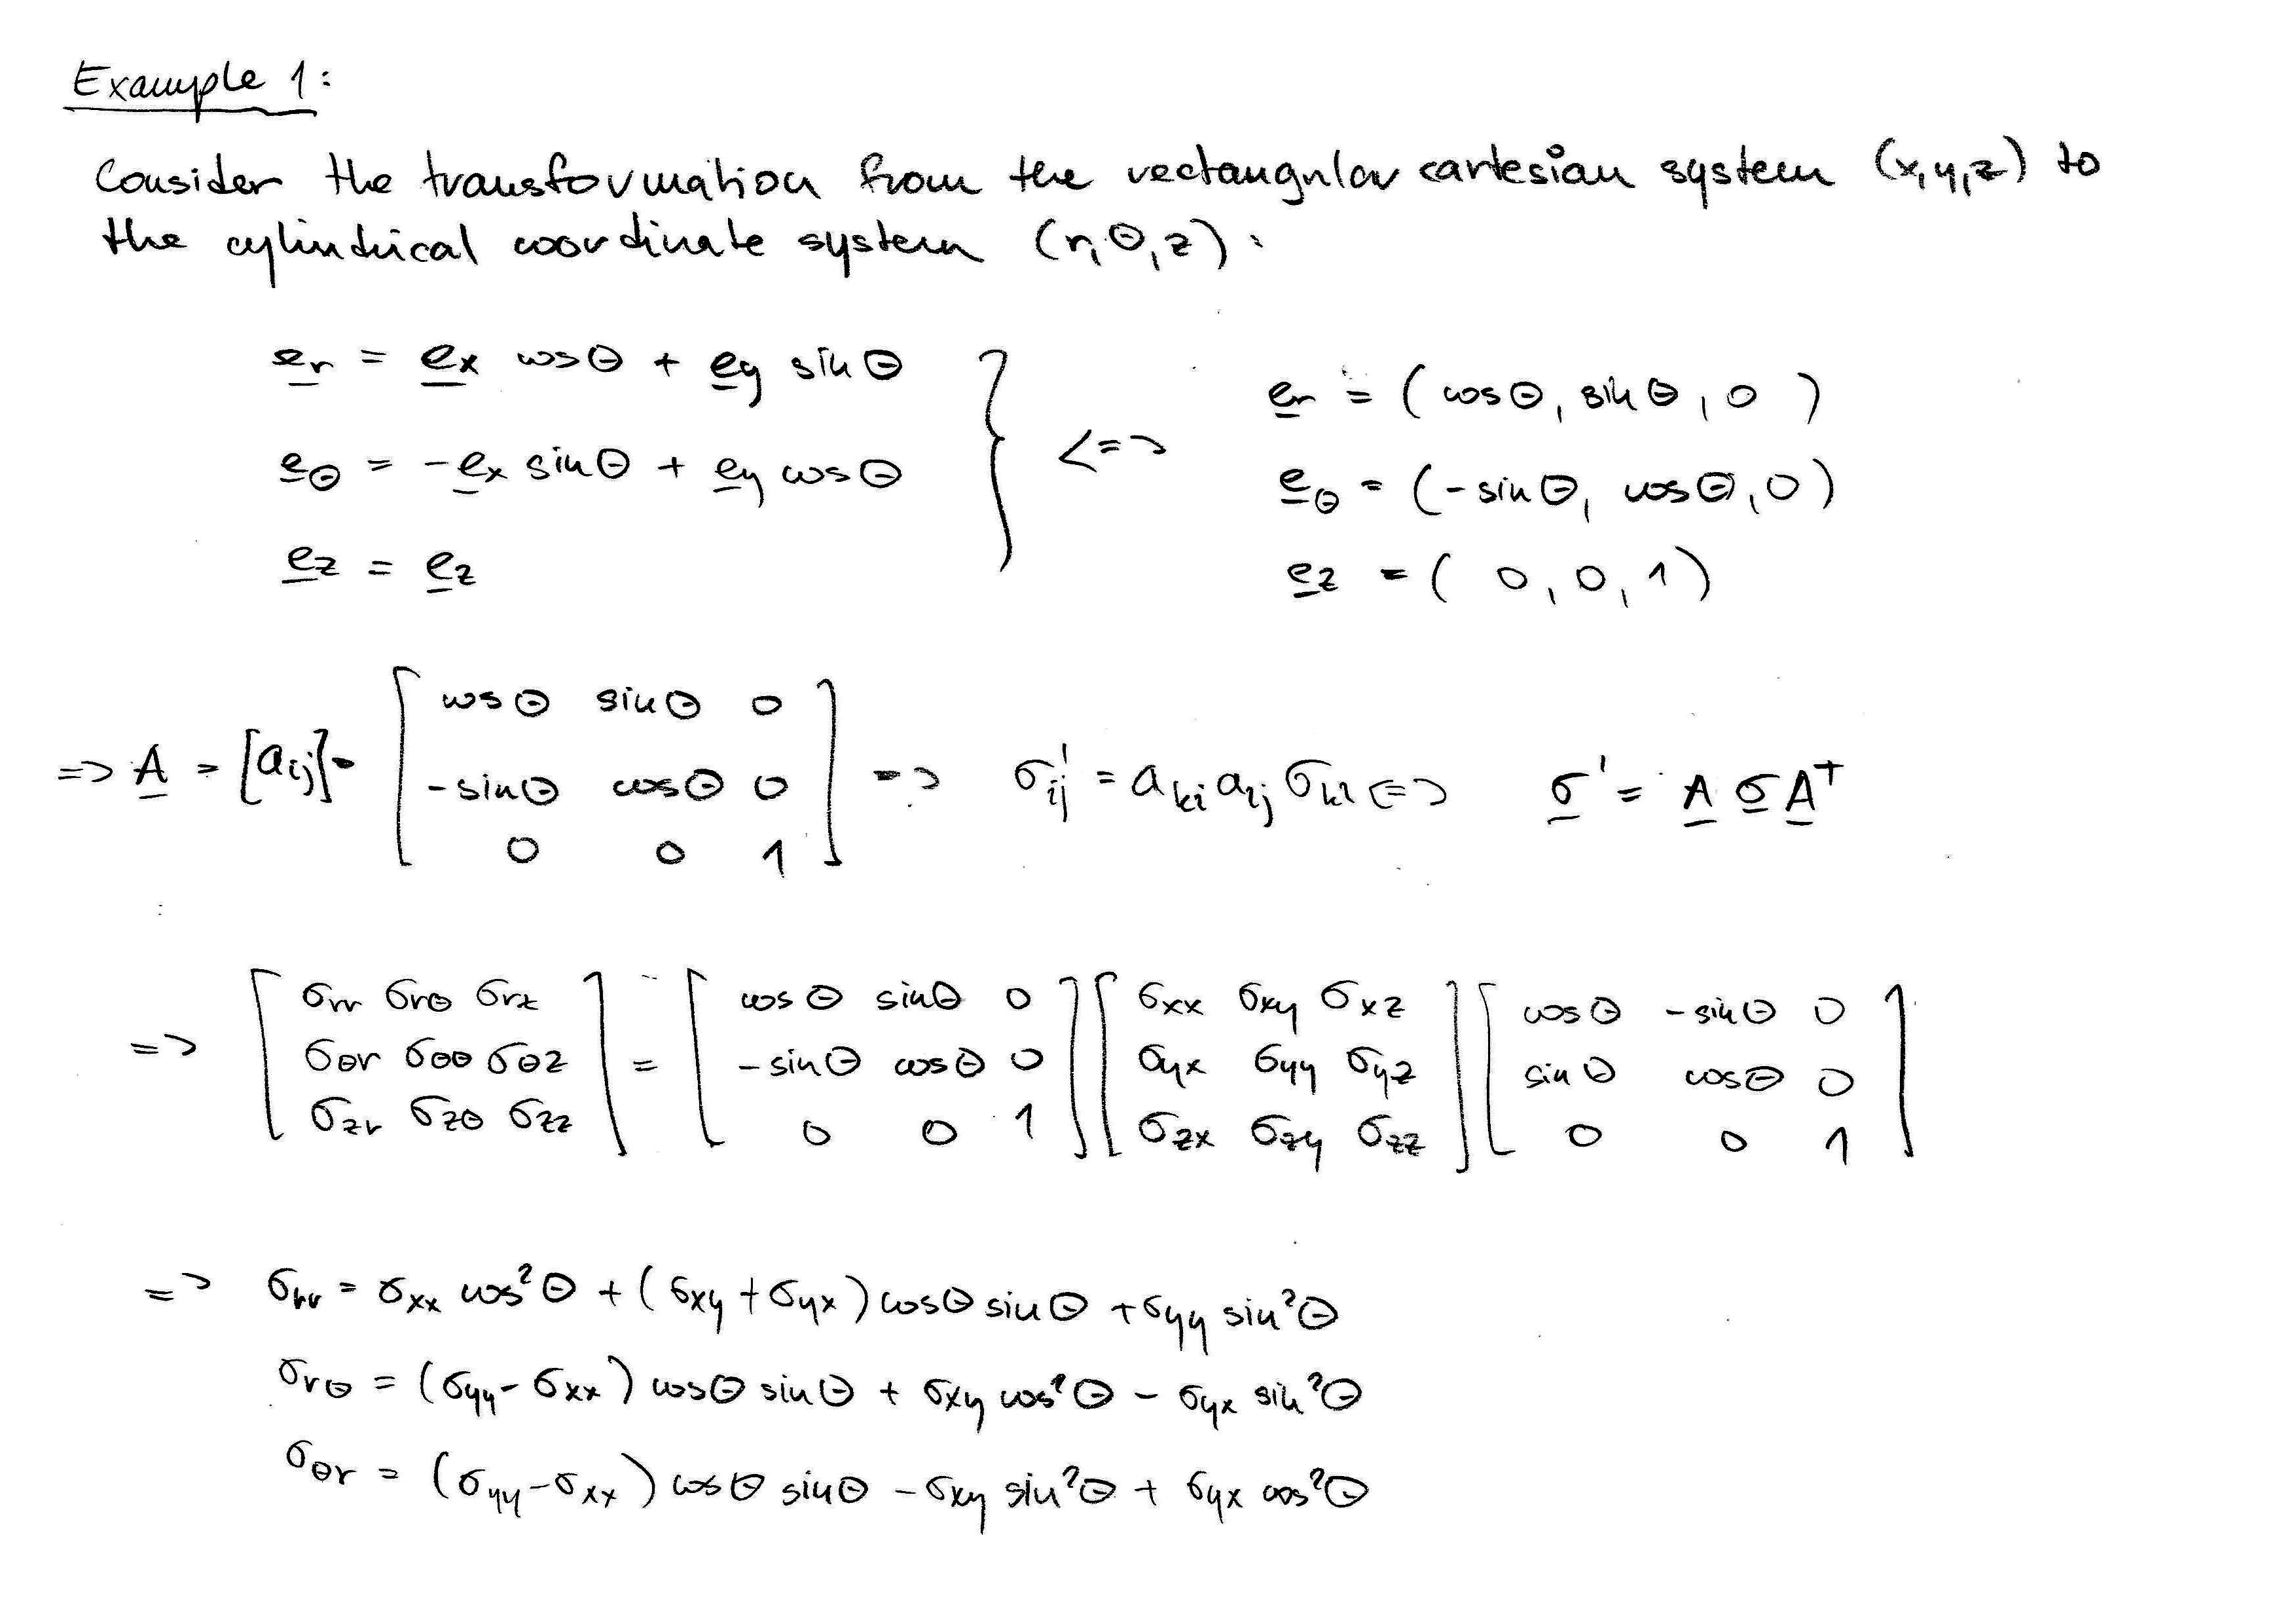 Example 1:
Consider the transformation from the rectangular cartesian system (x,y,z) to
the cylindrical coordinate system (r,θ,z):
e̲r = e̲x cosθ + e̲y sinθ
e̲θ = -e̲x sinθ + e̲y cosθ
e̲z = e̲z
} <=>
e̲r = (cosθ, sinθ, 0)
e̲θ = (-sinθ, cosθ, 0)
e̲z = (0, 0, 1)
=> A̲ = [aij] = [ cosθ sinθ 0
-sinθ cosθ 0
0 0 1 ] => σ'ij = aki alj σkl <=> σ̲' = A̲ σ̲ A̲ᵀ
=> [ σrr σrθ σrz
σθr σθθ σθz
σzr σzθ σzz ] = [ cosθ sinθ 0
-sinθ cosθ 0
0 0 1 ] [ σxx σxy σxz
σyx σyy σyz
σzx σzy σzz ] [ cosθ -sinθ 0
sinθ cosθ 0
0 0 1 ]
=> σrr = σxx cos²θ + (σxy + σyx) cosθ sinθ + σyy sin²θ
σrθ = (σyy - σxx) cosθ sinθ + σxy cos²θ - σyx sin²θ
σθr = (σyy - σxx) cosθ sinθ - σxy sin²θ + σyx cos²θ